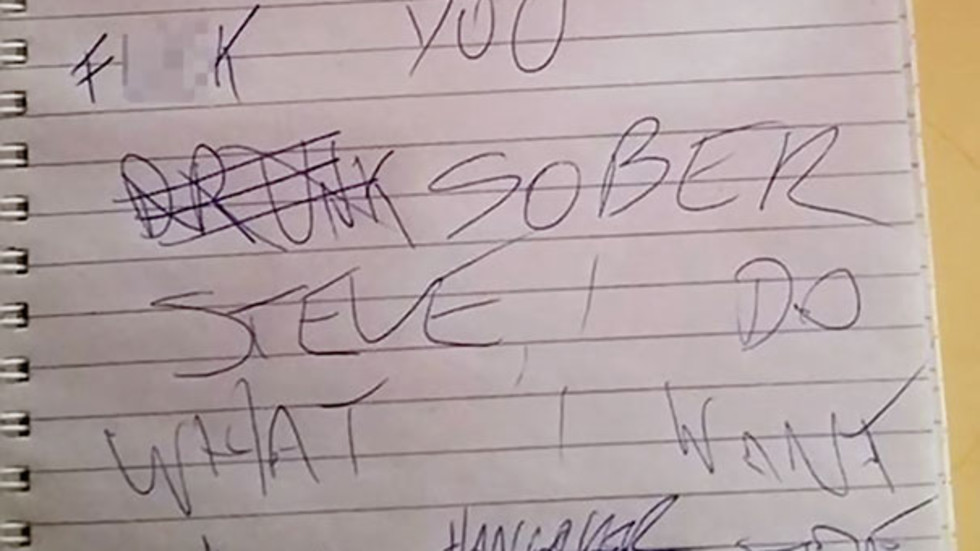 F K YOU
DRUNK SOBER
STEVE, I DO
WHAT I WANT
HANGOVER